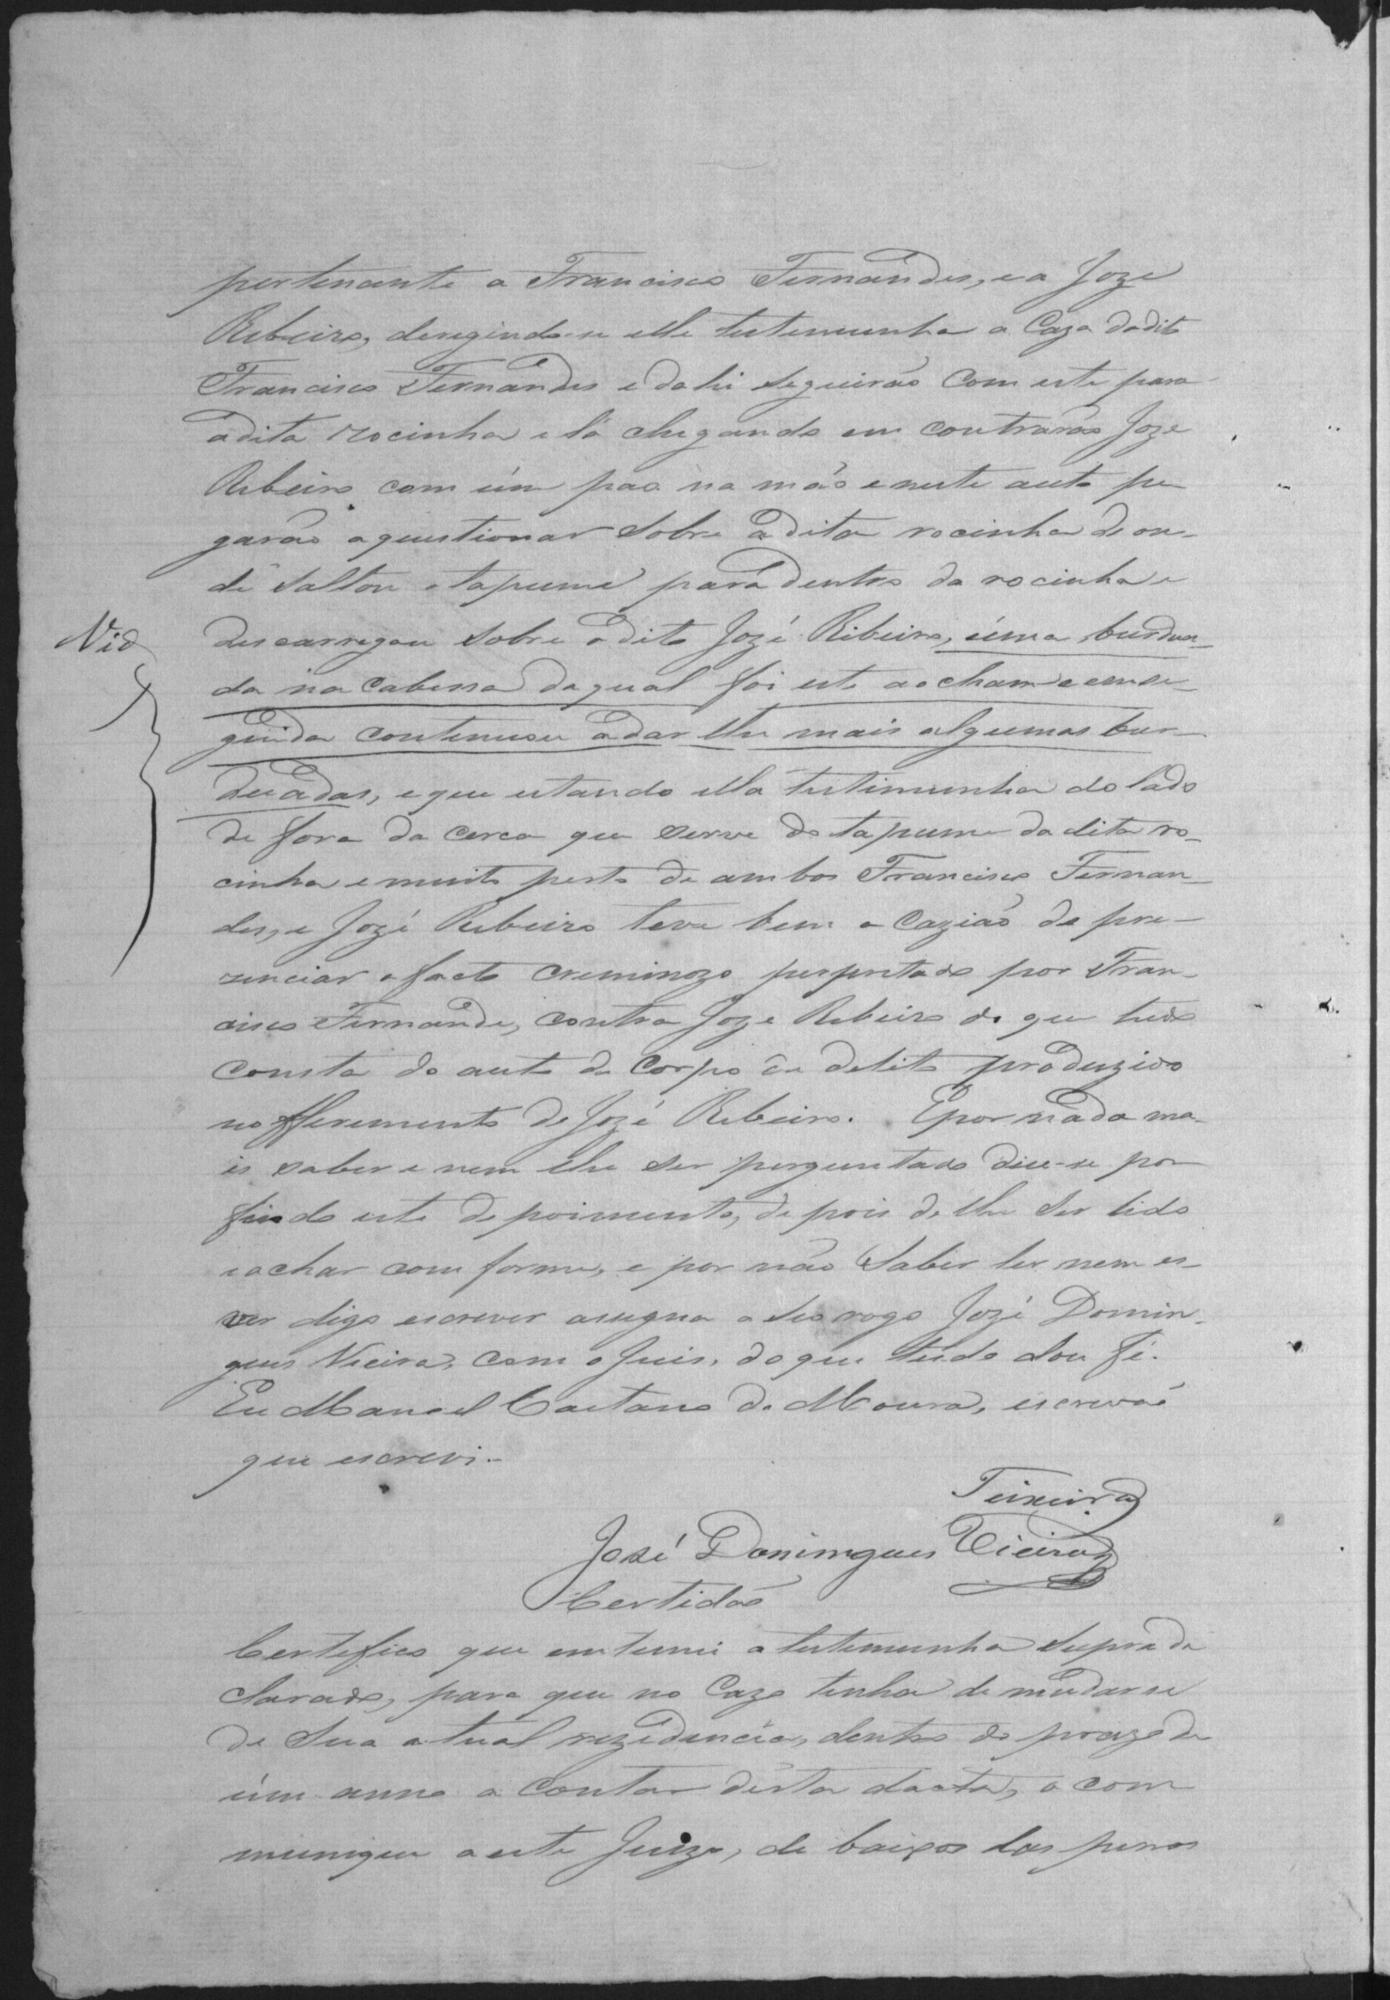 pertencente a Francisco Fernandes, e a Joze
Ribeiro, deregindo-se elle testemunha a Caza dodito
Francisco Fernandes e dahi seguirão com este para
adita rocinha e lá chegando em contrarão Joze
Ribeiro com úm pao na mão e neste auto pe
garão aquestionar sobre adita rocinha de on-
de saltou otapume para dentro da rocinha e
descarregou sobre odito Jozé Ribeiro, úma burdua-
da na Cabessa daqual foi este aocham e emse-
guida continuou adar lhe mais algumas bur-
Vid
duadas, e que estando ella testimunha do lado
de fora da cerca que serve de tapume da dita ro-
cinha e muito perto de ambos Francisco Fernan-
des, e Jozé Ribeiro teve bem o cazião de pre-
zenciar o facto creminozo perpretado por Fran-
cisco Fernande, contra Joze Ribeiro do que tudo
consta do auto de Corpo de delito produzido
no fferimento de Jozé Ribeiro. Epor nada ma-
is saber e nem lhe ser perguntado deu-se por
findo este depoimento, de pois de lhe ser lido
e achar com forme, e por não saber ler nem es-
ver digo escrever asigna a seo rogo Jozé Domin-
gues Vieira, com o Juis, do que tudo dou fé.
Eu Manoel Caetano de Moura, escrivão
que escrevi.
Teixeira
José Domingues Vieira
Certidão
Certefico que entemei a testemunha supra de
clarado, para que no Cazo tenha de mudarse
de sua atual rezidencia, dentro do prazo de
úm anno a Contar désta dacta, o com
munique a este Juizo, de baixo das penas